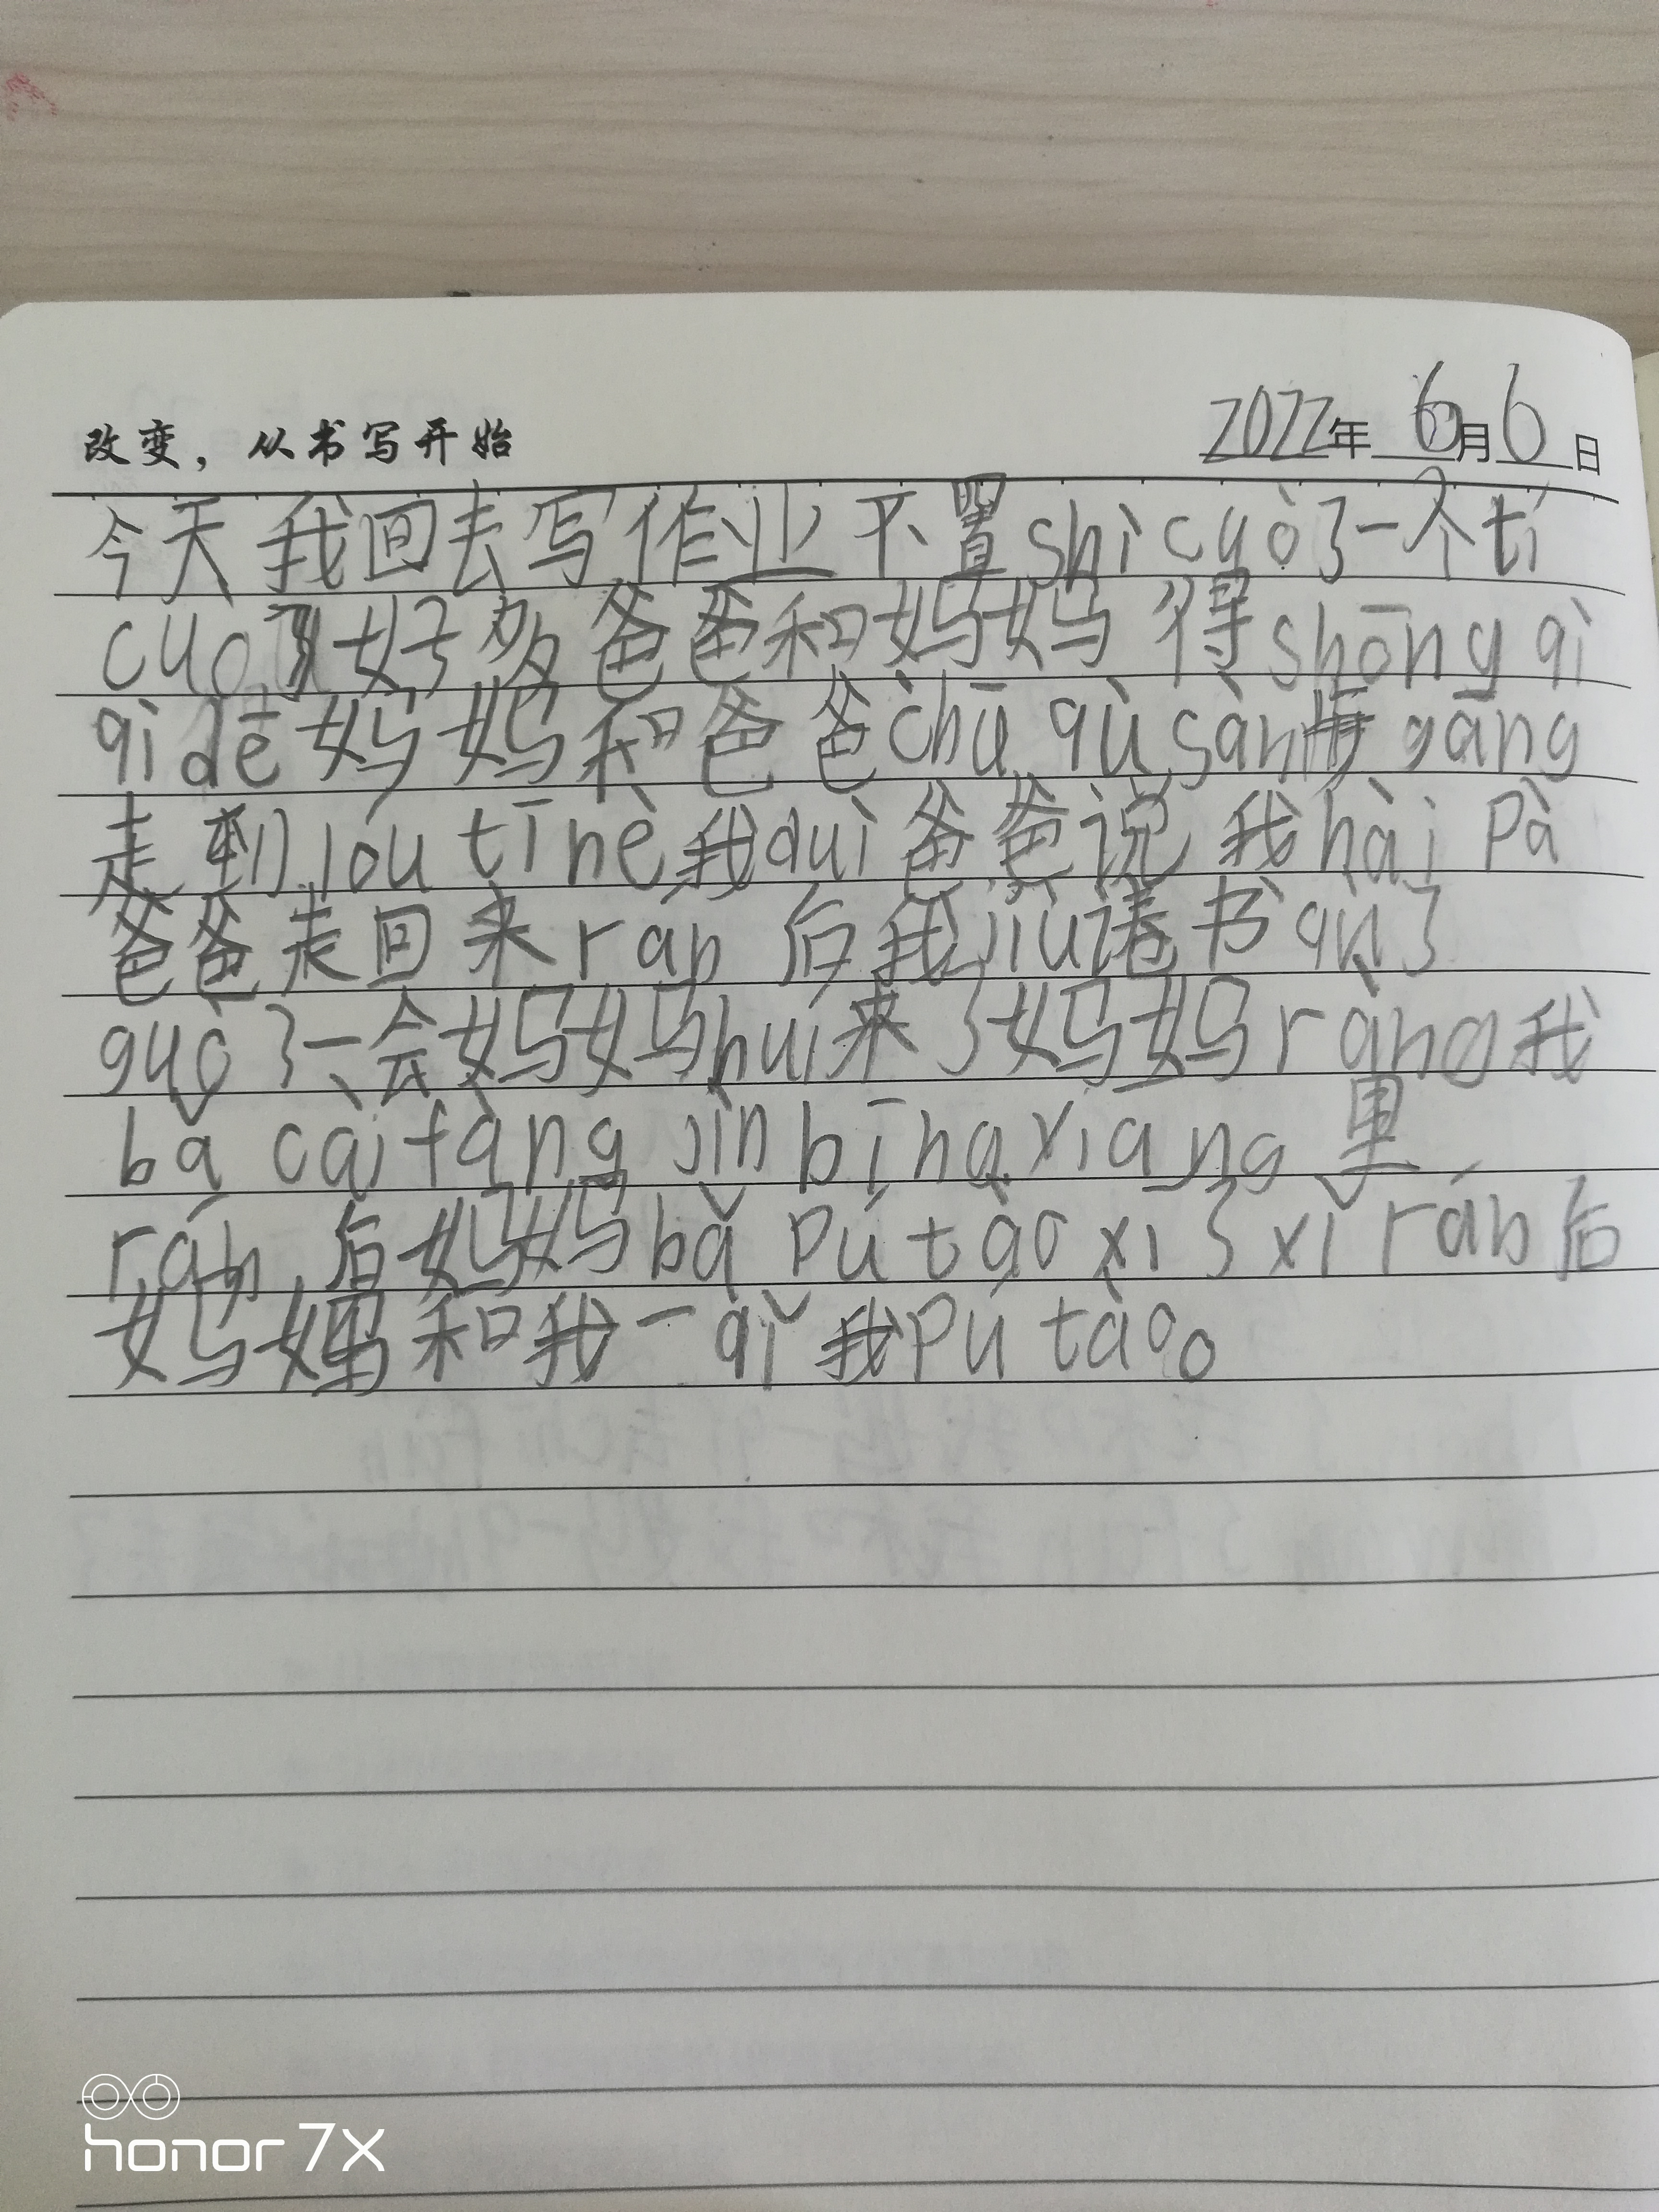 改变，从书写开始
2022年 6月6日
今天我回去写作业不置shì cuò了一个tí
cuo好多爸爸和妈妈得shōng qì
qì dē妈妈和爸爸chū qù sàn gāng
走到lóu tī nè我duì爸爸说我hài Pà
爸爸走回来rán后我jiù读书qù了
guò了一会妈妈huí来了妈妈ràng我
bǎ cài fàng jìn bīng xiang里
rán后妈妈bǎ Pú tào xǐ了xǐ rán后
妈妈和我一qǐ我Pú tào。
honor 7X